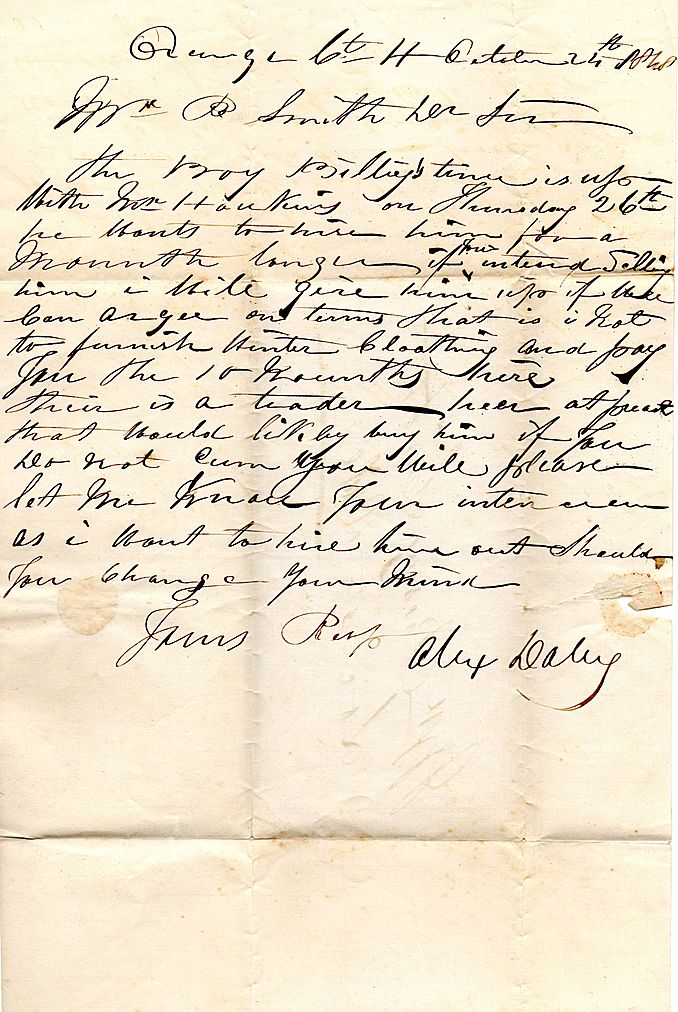 Orange Ct H October 24th 1848
Wm B Smith Dr Sir
the Boy Billey's time is up
With Mr Hawkins on Thursday 26th
he Wants to hire him for a
Mounth longer if you intend Selling
him i Wile give him up if Wee
Can Argee on terms that is i Not
to furnish Winter Cloathing and pay
You the 10 Mounths hire
their is a trader heer at preast
that Would likby buy him if You
Do not Cum you Wile please
let Me Know Your
as i Want to hire him out Should
You Change Your Mind
Yours Resp
Alex Daley